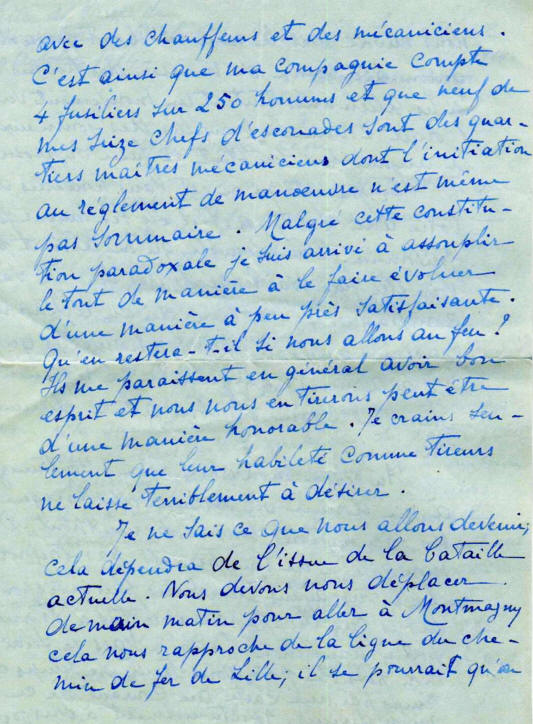 avec des chauffeurs et des mécaniciens.
C'est ainsi que ma compagnie compte
4 fusiliers sur 250 hommes et que neuf de
mes seize chefs d'escouades sont des quar-
tiers maîtres mécaniciens dont l'initiation
au réglement de manoeuvre n'est même
pas sommaire. Malgré cette constitu-
tion paradoxale je suis arrivé à assouplir
le tout de manière à le faire évoluer
d'une manière à peu près satisfaisante.
Qu'en restera-t-il si nous allons au feu?
Ils me paraissent en général avoir bon
esprit et nous nous en tirerons peut être
d'une manière honorable. Je crains seu-
lement que leur habileté comme tireurs
ne laisse terriblement à désirer.
Je ne sais ce que nous allons devenir;
cela dépendra de l'issue de la bataille
actuelle. Nous devons nous déplacer
demain matin pour aller à Montmagny
cela nous rapproche de la ligne du che-
min de fer de Lille; il se pourrait qu'on